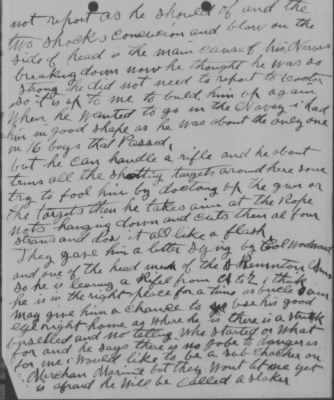 not report as he should of and the
two shocks concussion and blow on the
side of head is the main cause of his Nerves
breaking down now he thought he was so
strong he did not need to report to Doctor
so it is up to me to build him up again
When he wanted to go in the Navy i had
him in good shape as he was about the only one
in 16 boys that Passed,
but he can handle a rifle and he about
trims all the shotting targets around here some
try to fool him by doctong up the gun or
the targets then he takes aim at the Rope
nots hanging down and cuts them al four
strans and dos it all like a flash
They gave him a letter by Col Woodward
and one of the head men of the Remington
So he is a Rifel from A to Z i think
he is in the right place for a as uncle Sam
may give him a chance to use his good
eye right home as where he is there is a
and no telling who started or what
for and he says there is no gobe to dangeras
for me i would like to be a sub chaser or
Merchan Marine but they wont let me yet
is afraid he will be called a slaker